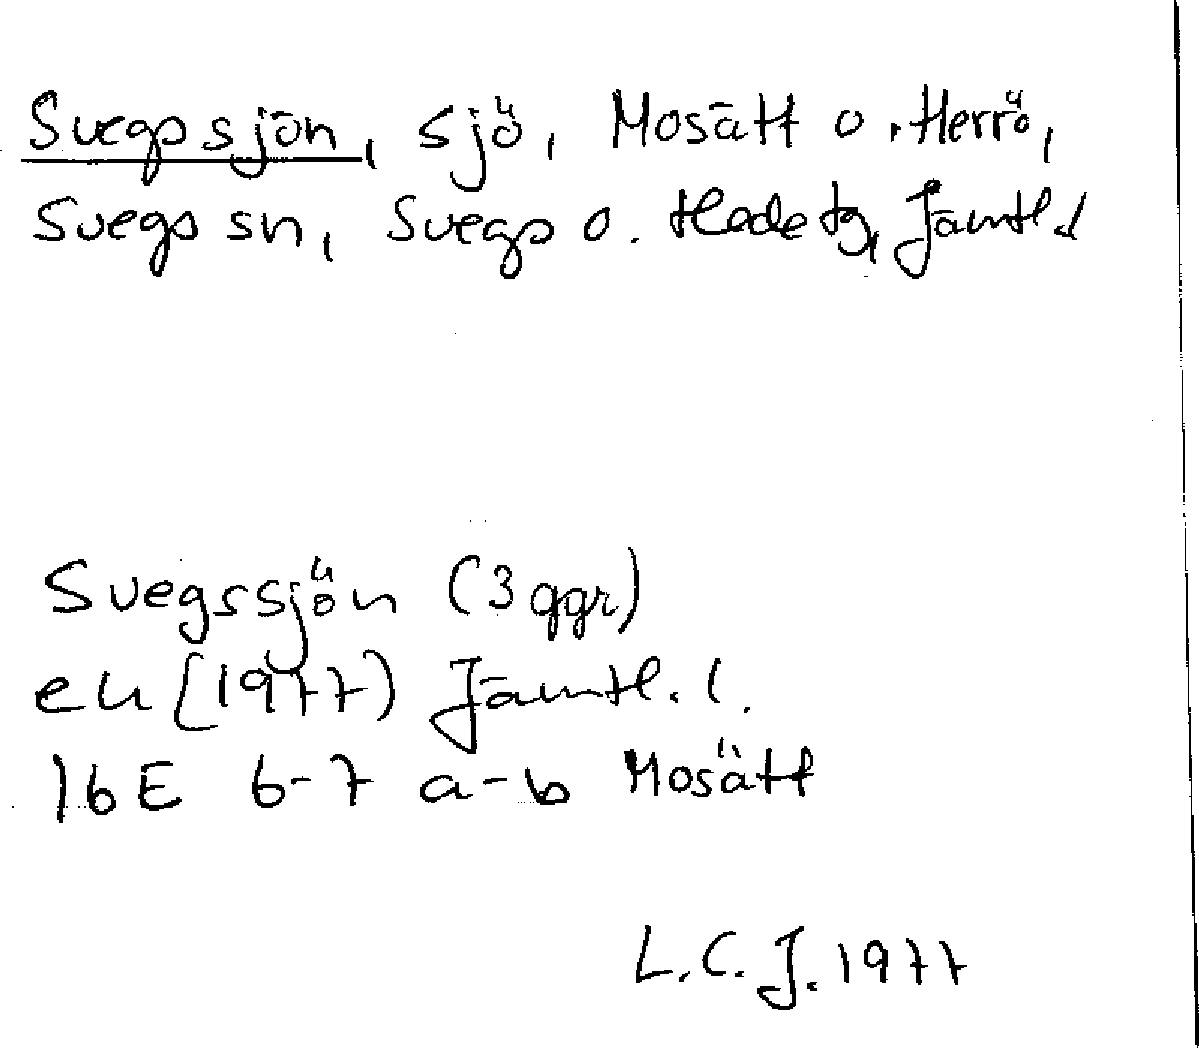 Svegssjön, sjö, Mosätt o. Herrö,
Svegs sn, Svegs o. Hede tg, Jämtl. l
Svegssjön (3 ggr)
ek [1977) Jämtl. l.
16E 6-7 a-b Mosätt
L.C.J. 1977